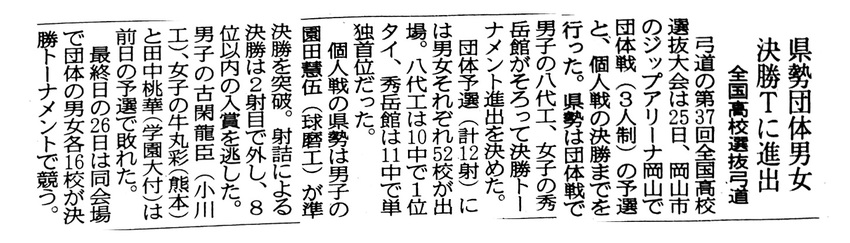 県勢団体男女
決勝Tに進出
全国高校選抜弓道
弓道の第37回全国高校
選抜大会は25日、岡山市
のジップアリーナ岡山で
団体戦（3人制）の予選
と、個人戦の決勝までを
行った。県勢は団体戦で
男子の八代工、女子の秀
岳館がそろって決勝トー
ナメント進出を決めた。
団体予選（計12射）に
は男女それぞれ52校が出
場。八代工は10中で1位
タイ、秀岳館は11中で単
独首位だった。
個人戦の県勢は男子の
園田慧伍（球磨工）が準
決勝を突破。射詰による
決勝は2射目で外し、8
位以内の入賞を逃した。
男子の古閑龍臣（小川
工）、女子の牛丸彩（熊本）
と田中桃華（学園大付）は
前日の予選で敗れた。
最終日の26日は同会場
で団体の男女各16校が決
勝トーナメントで競う。